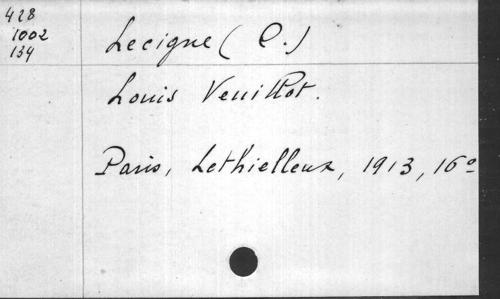 428
1002
134
Lecigne (C.)
Louis Veuillot.
Paris, Lethielleux, 1913, 16º